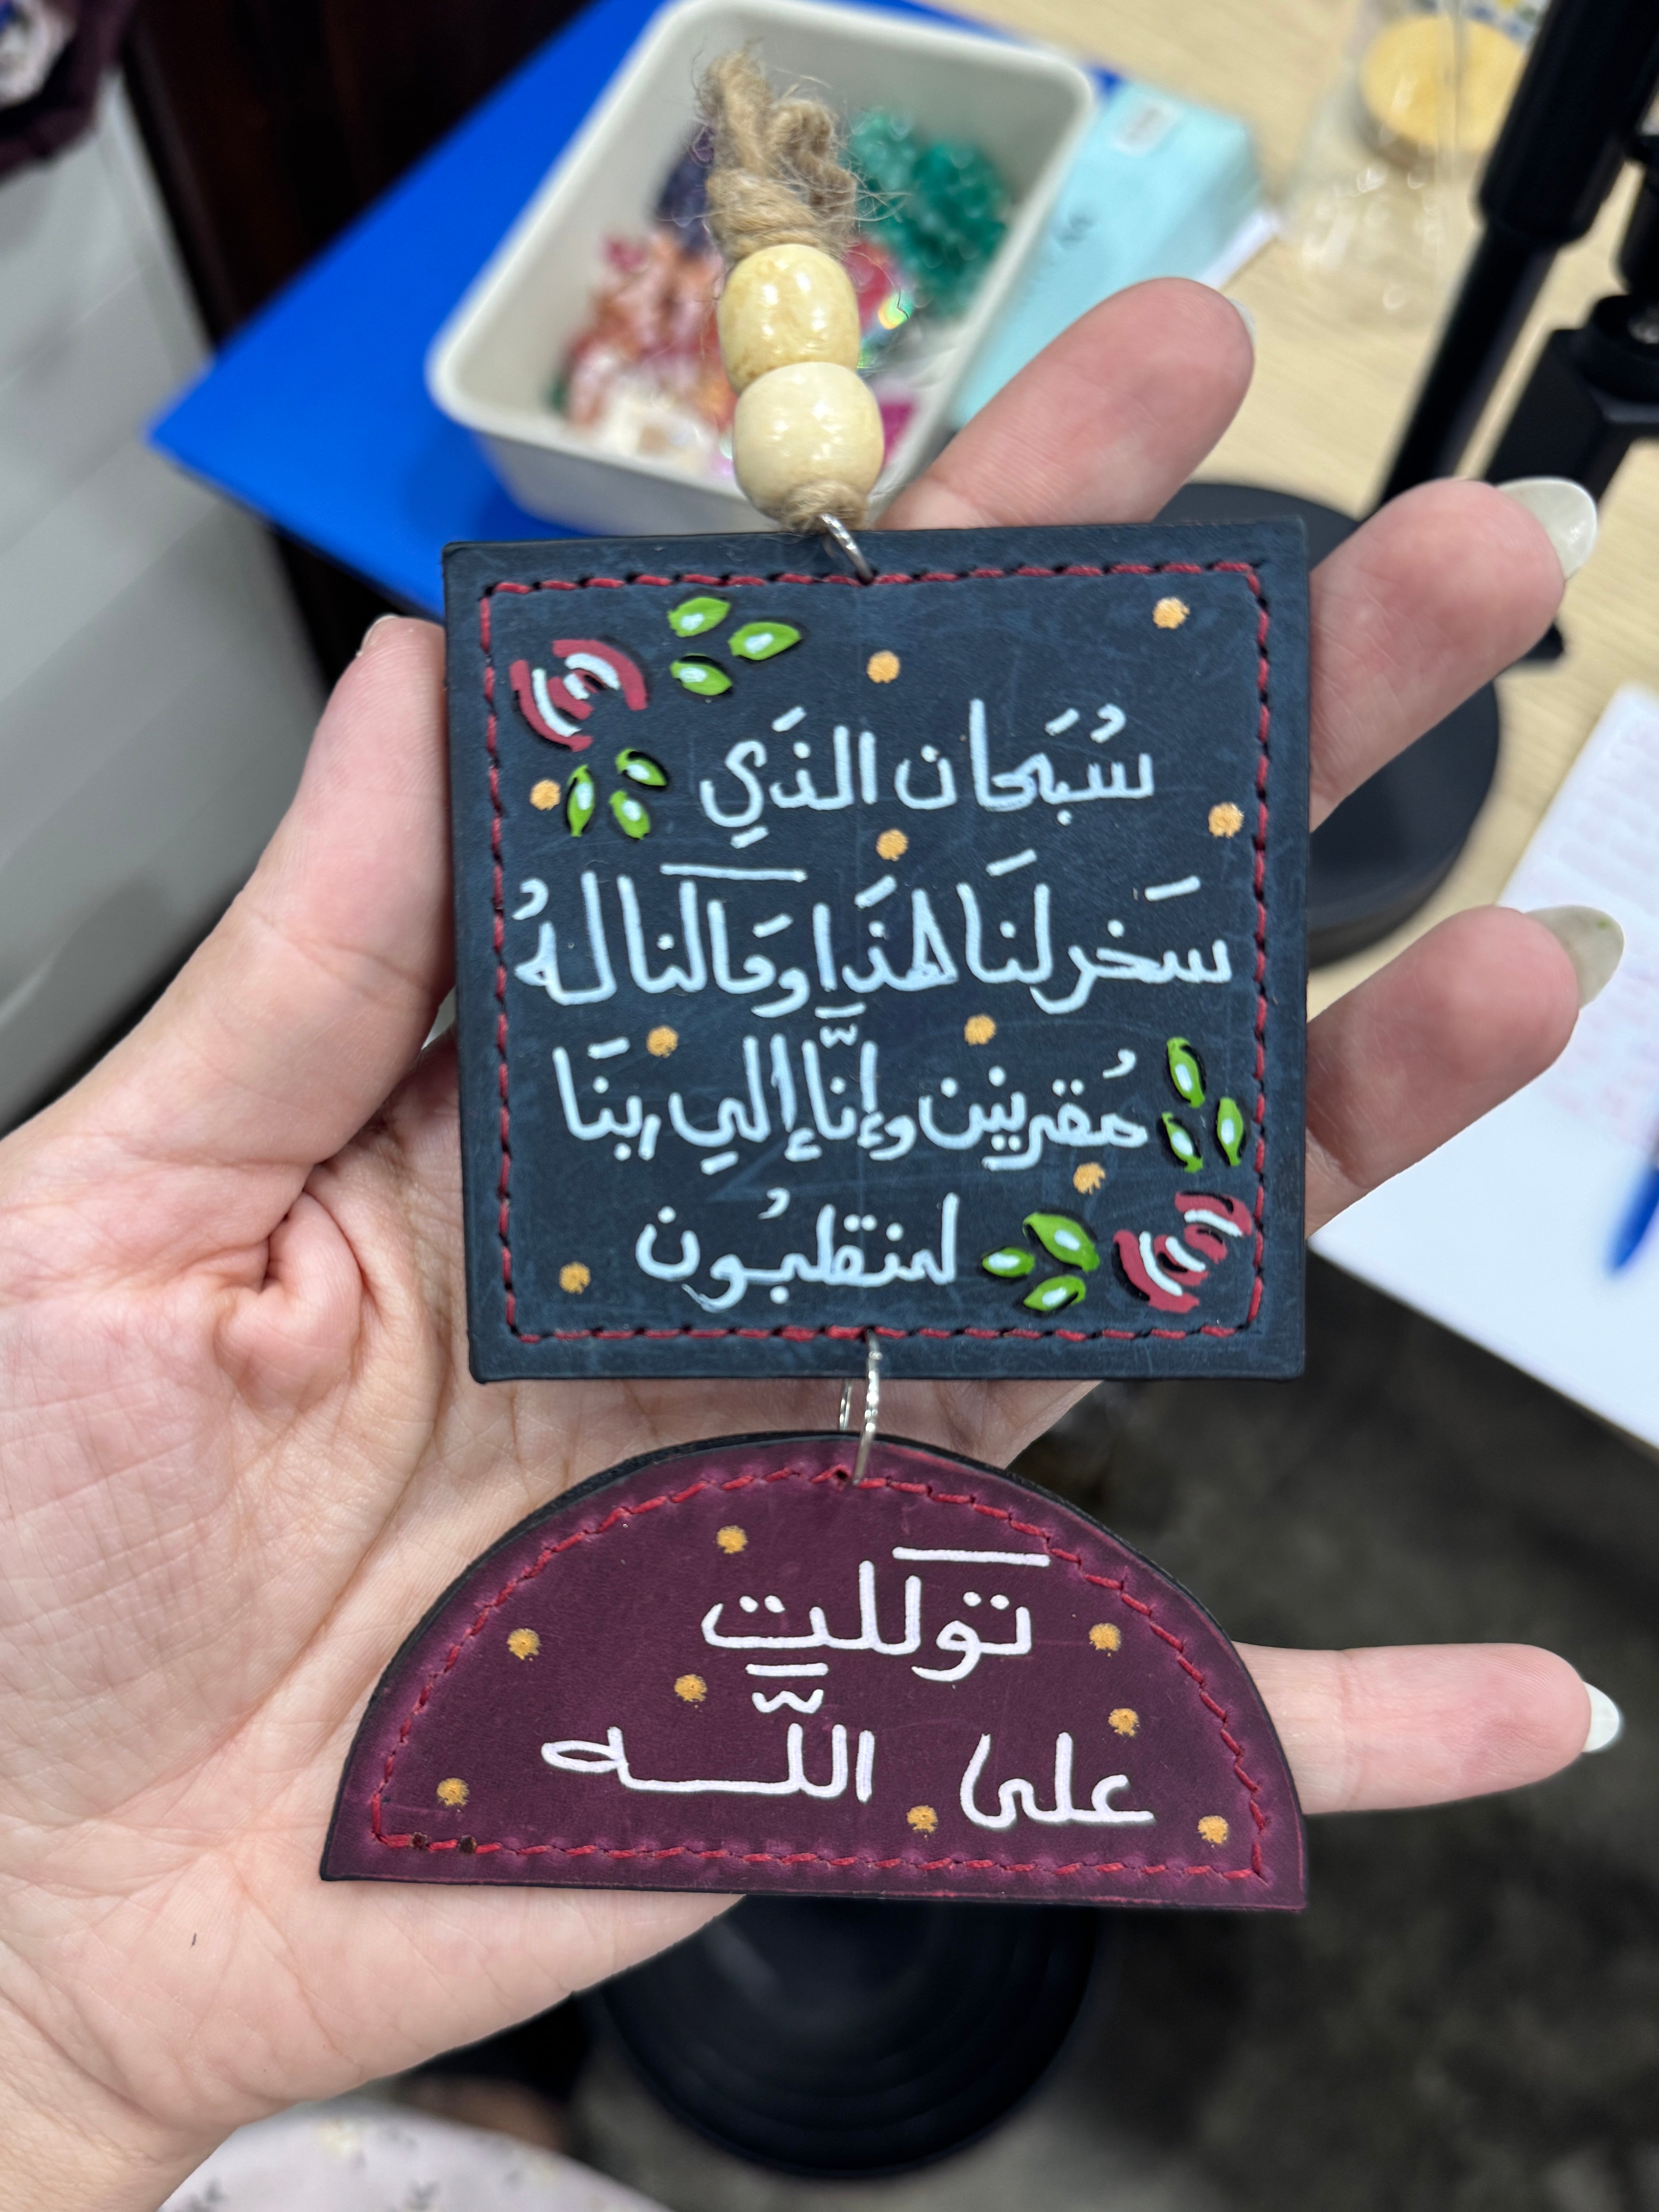 سُبَحان الذَي
سَخر لنَا هذَا ومَا كنا لهُ
مُقرنين وإنَّا إلي ربنَا
لمنقلبُون
توكلت
على اللَّه